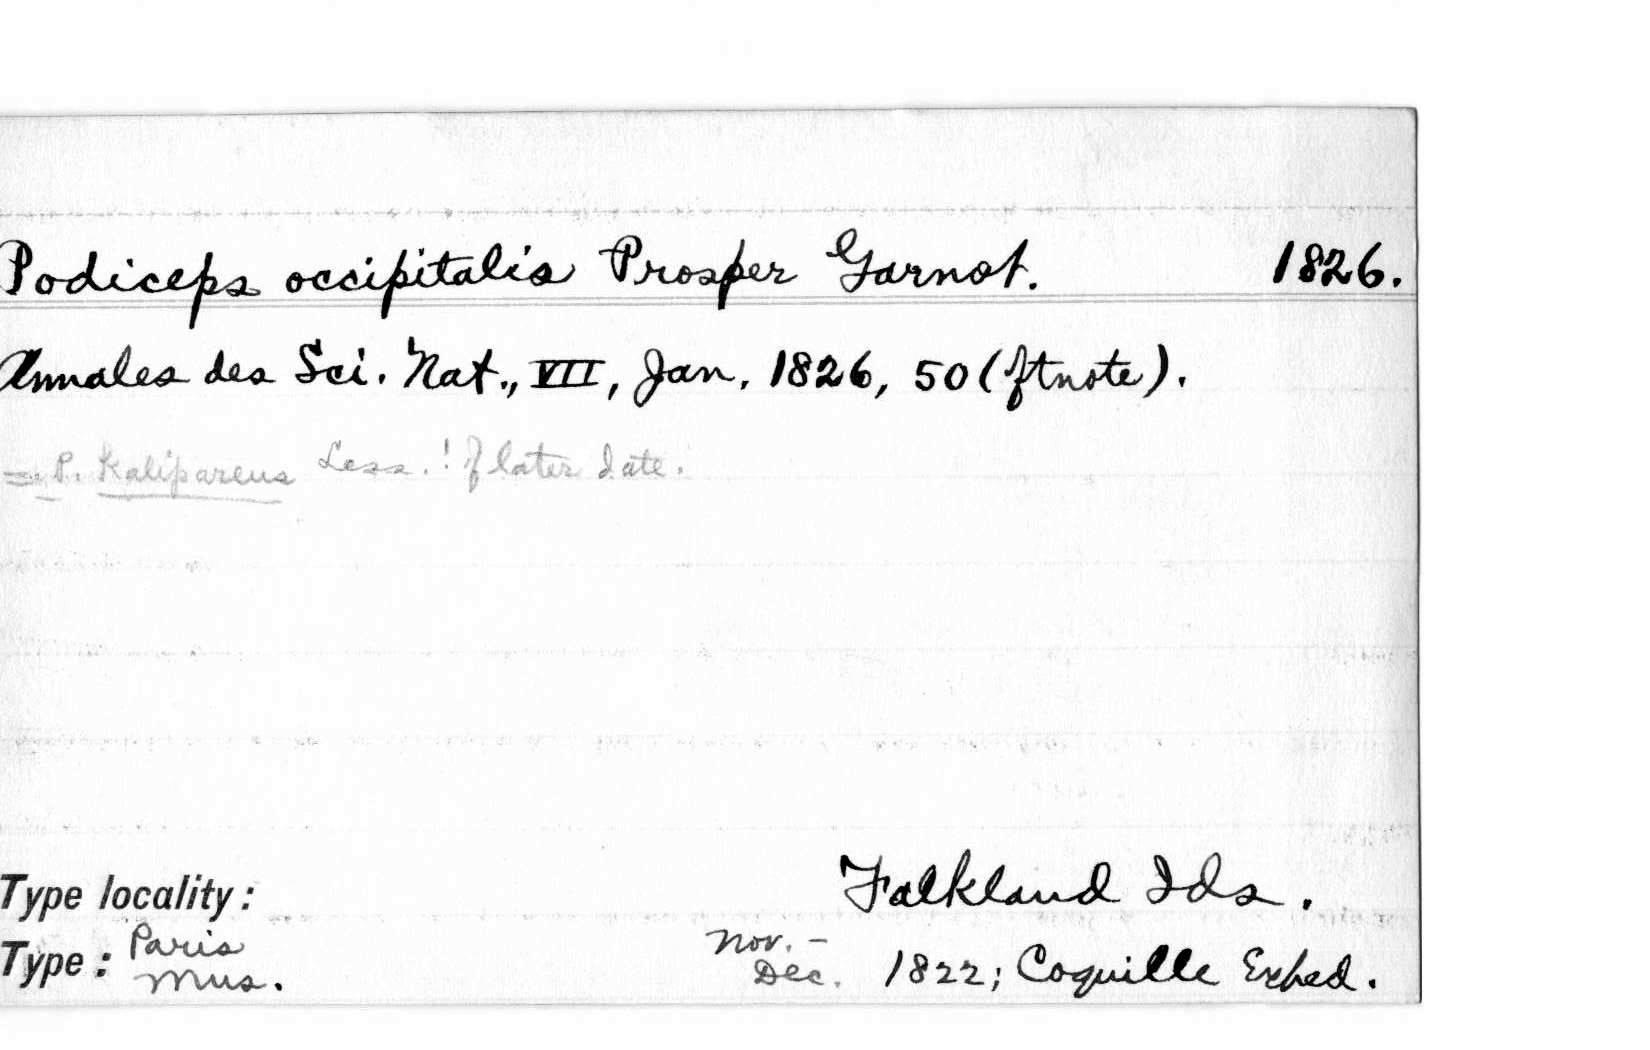 Podiceps occipitalis Prosper Garnot. 1826.
Annales des Sci. Nat., VII, Jan. 1826, 50 (ftnote).
= P. Kalipareus Less.! of later date.
Type locality: Falkland Ids.
Type: Paris Mus. Nov.-Dec. 1822; Coquille Exped.